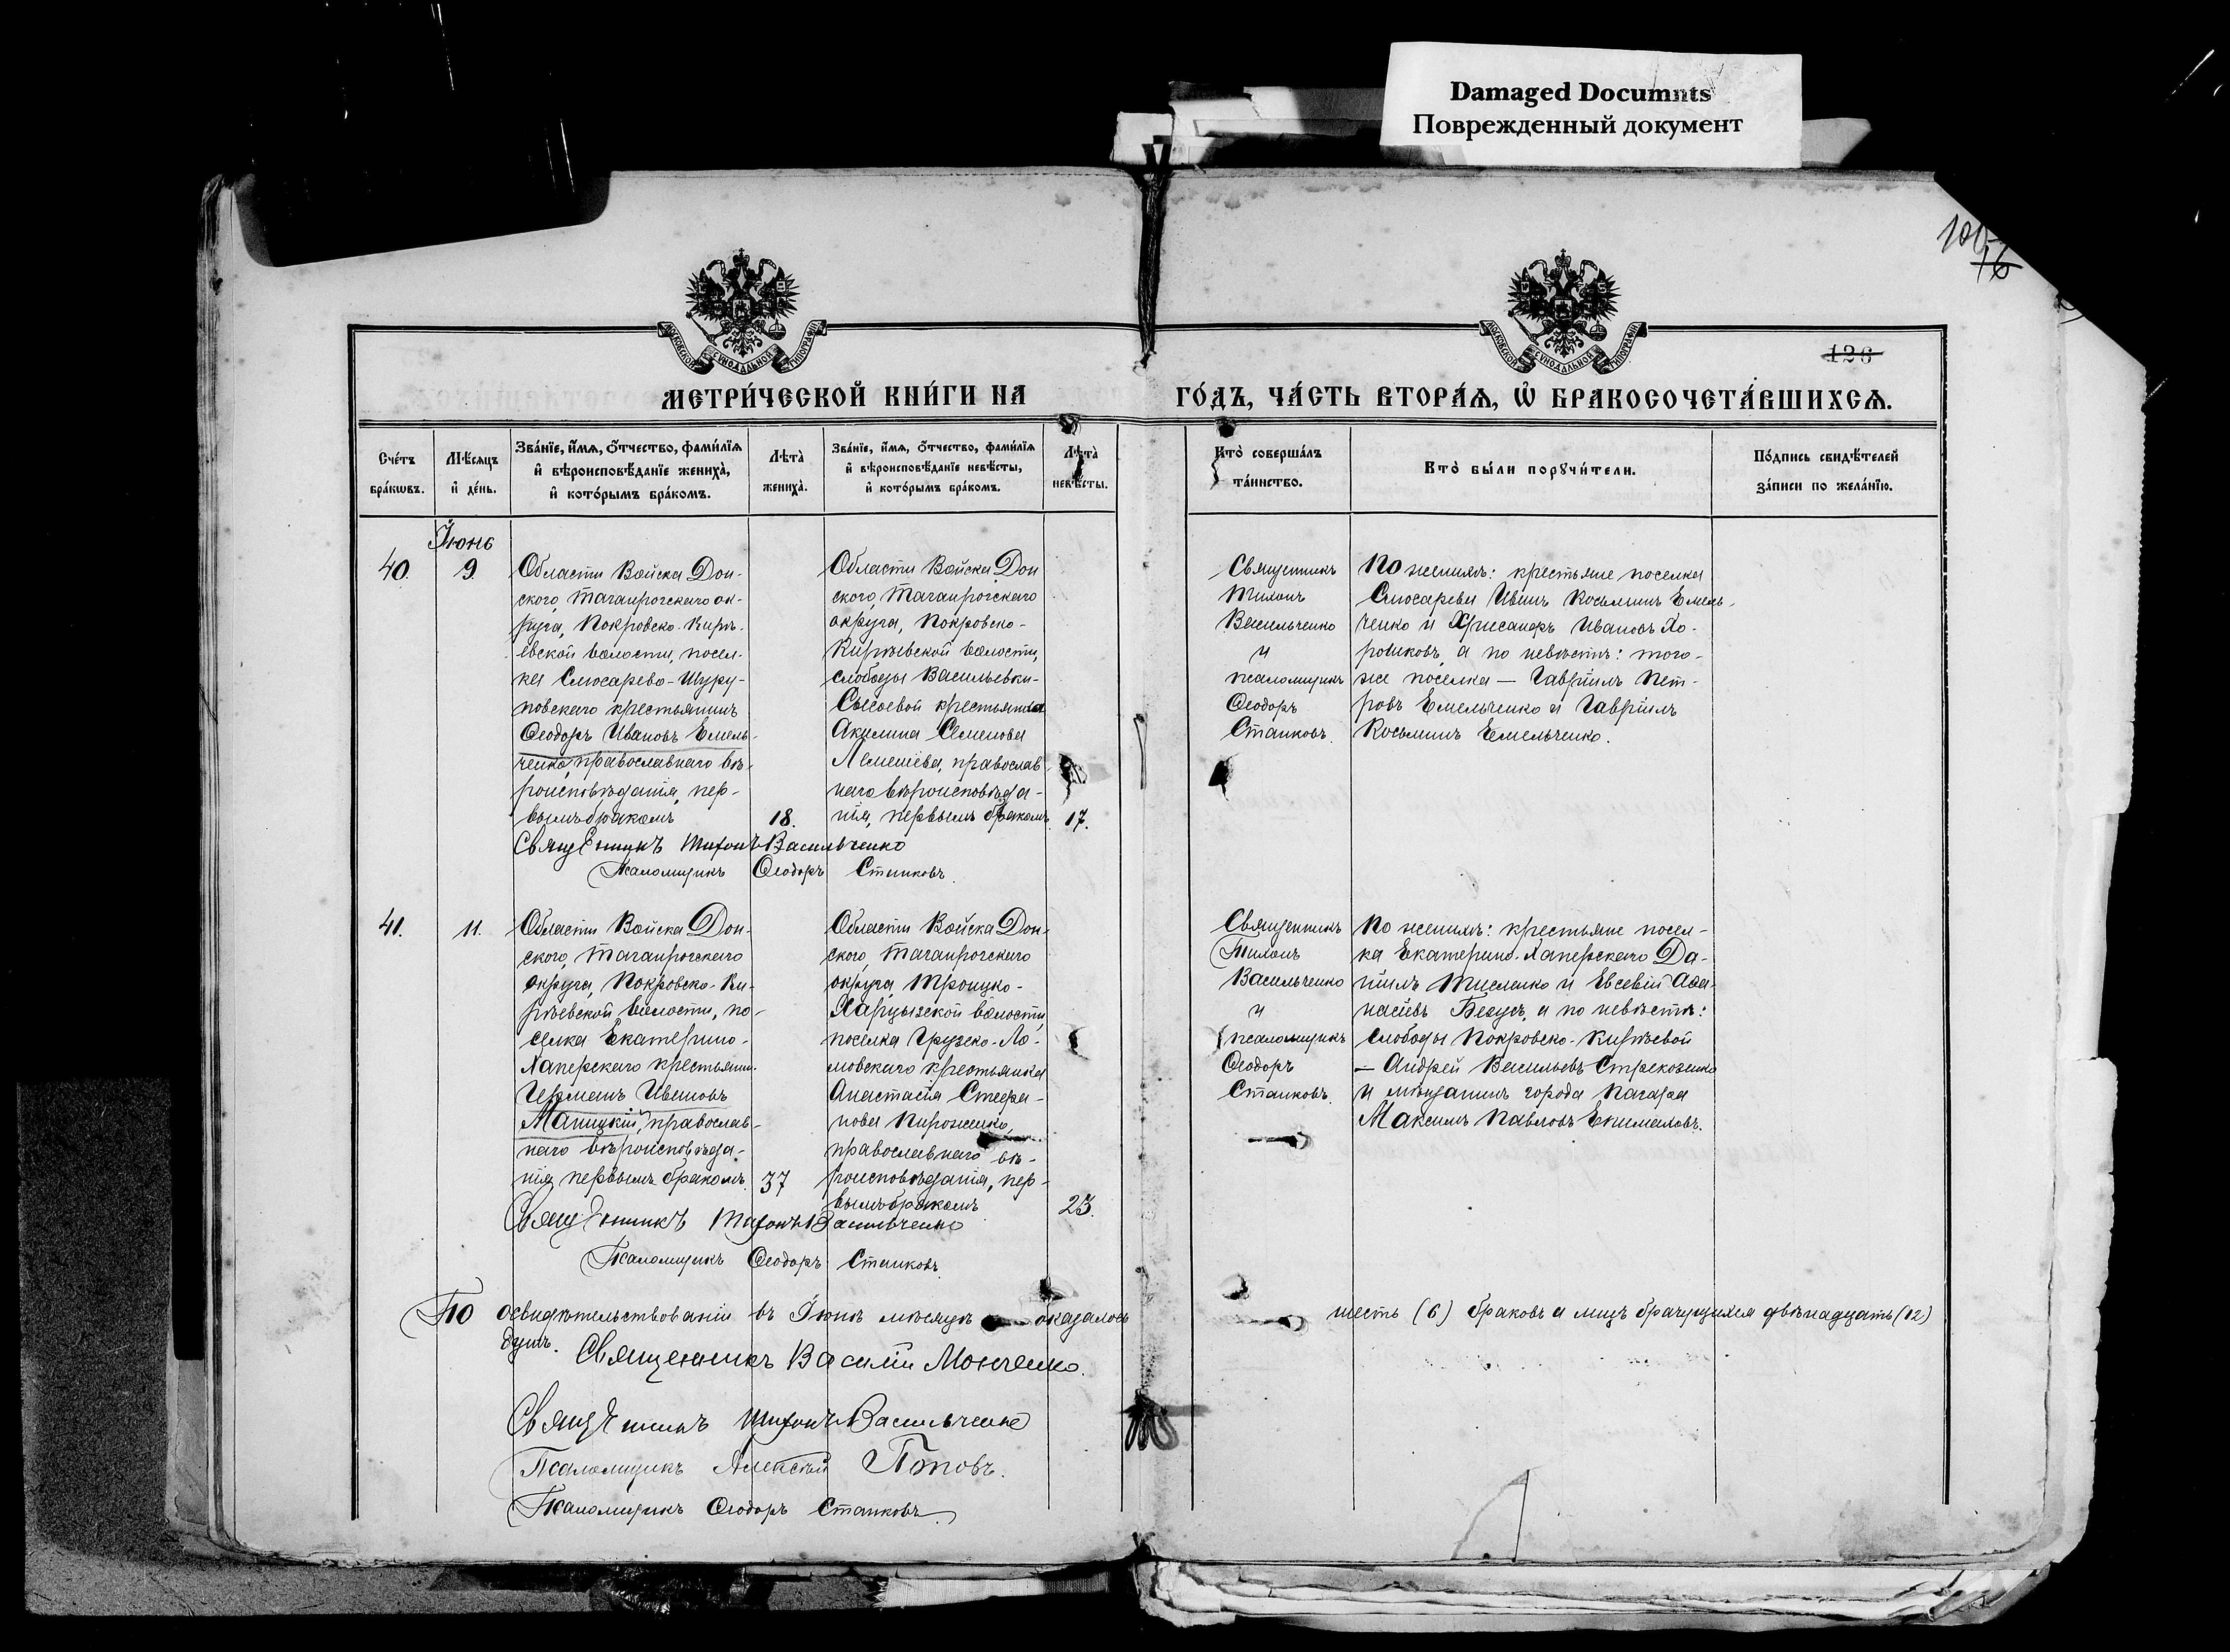 Damaged Documnts
Поврежденный документ
126
МЕТРИ́ЧЕСКОЙ КНИ́ГИ НА ГО́ДЪ, ЧА́СТЬ ВТОРА́Ѧ, Ѽ БРАКОСОЧЕТА́ВШИХСѦ.
Сче́тъ бра́кѡвъ.
Мѣ́сяцъ и҆ де́нь.
Зва́нїе, и҆́мѧ, ѻ҆́тчество, фами́лїѧ и҆ вѣроисповѣ́данїе жениха̀, и҆ кото́рымъ бра́комъ.
Лѣта̀ жениха̀.
Зва́нїе, и҆́мѧ, ѻ҆́тчество, фами́лїѧ и҆ вѣроисповѣ́данїе невѣ́сты, и҆ кото́рымъ бра́комъ.
Лѣта̀ невѣ́сты.
Кто̀ соверша́лъ та́инство.
Кто̀ бы́ли порꙋчи́тели.
По́дпись свидѣ́телей за́писи по жела́нїю.
Іюнь
40.
9.
Области Войска Дон-
ского, Таганрогскаго ок-
руга, Покровско-Кирѣ-
евской волости, посел-
ка Слюсарево-Шуру-
повскаго крестьянинъ
Ѳеодоръ Ивановъ Емель-
ченко, православнаго вѣ-
роисповѣданія, пер-
вымъ бракомъ
18.
Области Войска Дон
ского, Таганрогскаго
округа, Покровско-
Кирѣевской волости,
слободы Васильевки-
Сысоевой крестьянка
Акилина Семенова
Лемешева, православ-
наго вѣроисповѣда-
нія, первымъ бракомъ.
17.
Священникъ
Тихонъ
Васильченко
и
псаломщикъ
Ѳеодоръ
Станковъ.
По женихѣ: крестьяне поселка
Слюсарева Иванъ Косьминъ Емель-
ченко и Хрисанфъ Ивановъ Хо-
рошковъ, а по невѣстѣ: того-
же поселка — Гавріилъ Пет-
ровъ Емельченко и Гавріилъ
Косьминъ Емельченко.
Священникъ Тихонъ Васильченко
Псаломщикъ Ѳеодоръ Станковъ.
41.
11.
Области Войска Дон-
ского, Таганрогскаго
округа, Покровско-Ки-
рѣевской волости, по-
селка Екатерино-
Хаперскаго крестьянин.
Германъ Ивановъ
Маницкій, православ-
наго вѣроисповѣда-
нія, первымъ бракомъ.
37
Области Войска Дон-
ского, Таганрогскаго
округа, Троицко-
Харцызской волости,
поселка Грузско-Ло-
мовскаго крестьянка
Анастасія Стефа-
нова Пироженко,
православнаго вѣ-
роисповѣданія, пер-
вымъ бракомъ
23.
Священникъ
Тихонъ
Васильченко
и
псаломщикъ
Ѳеодоръ
Станковъ.
По женихѣ: крестьяне посел-
ка Екатерино-Хаперскаго Да-
ніилъ Тисленко и Евсевій Аѳа-
насіевъ Бегусъ, а по невѣстѣ:
слободы Покровско-Кирѣевой
— Андрей Васильевъ Стрекозенко
и мѣщанинъ города
Максимъ Павловъ Екимаховъ.
Священникъ Тихонъ Васильченко
Псаломщикъ Ѳеодоръ Станковъ.
По освидѣтельствованіи въ Іюнѣ мѣсяцѣ оказалось шесть (6) браковъ а лицъ брачущихся двѣнадцать (12)
душъ.
Священникъ Василій Монченко.
Священникъ Тихонъ Васильченко
Псаломщикъ Алексѣй Поповъ.
Псаломщикъ Ѳеодоръ Станковъ.